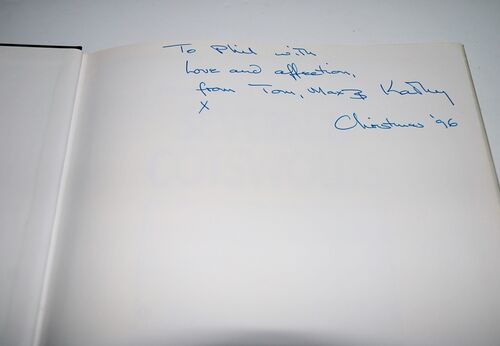 To Phil with
Love and affection,
from Tom, Max & Kathy
x
Christmas '96